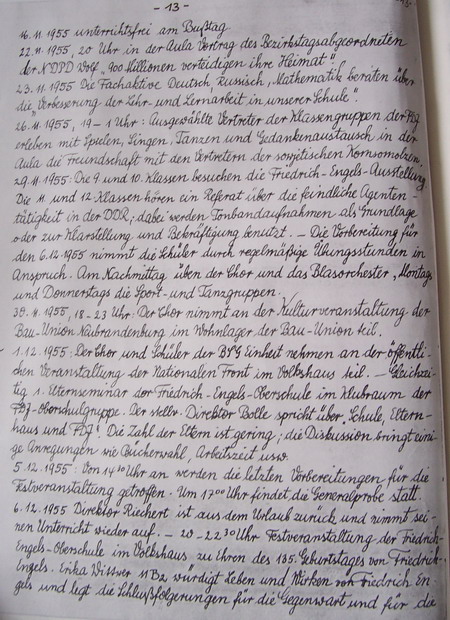 - 13 -
16.11.1955 unterrichtsfrei am Bußtag
22.11.1955, 20 Uhr in der Aula Vortrag des Bezirkstagsabgeordneten
der NDPD Wolf „900 Millionen verteidigen ihre Heimat".
23.11.1955 Die Fachaktive Deutsch, Russisch, Mathematik beraten über
die „Verbesserung der Lehr- und Lernarbeit in unserer Schule".
26.11.1955, 19-1 Uhr: Ausgewählte Vertreter der Klassengruppen der FDJ
erleben mit Spielen, Singen, Tanzen und Gedankenaustausch in der
Aula die Freundschaft mit den Vertretern der sowjetischen Komsomolzen.
29.11.1955: Die 9 und 10. Klassen besuchen die Friedrich-Engels-Ausstellung
Die 11 und 12. Klassen hören ein Referat über die feindliche Agenten-
tätigkeit in der DDR; dabei werden Tonbandaufnahmen als Grundlage
oder zur Klarstellung und Bekräftigung benutzt. - Die Vorbereitung für
den 6.12.1955 nimmt die Schüler durch regelmäßige Übungsstunden in
Anspruch. Am Nachmittag üben der Chor und das Blasorchester, Montags
und Donnerstags die Sport- und Tanzgruppen.
30.11.1955, 18-23 Uhr: Der Chor nimmt an der Kulturveranstaltung der
Bau-Union Neubrandenburg im Wohnlager der Bau-Union teil.
1.12.1955: Der Chor und Schüler der BSG Einheit nehmen an der öffentli-
chen Veranstaltung der Nationalen Front im Volkshaus teil. - Gleichzei-
tig 1. Elternseminar der Friedrich-Engels-Oberschule im Klubraum der
FDJ-Oberschulgruppe. Der stellv. Direktor Bolle spricht über „Schule, Eltern-
haus und FDJ". Die Zahl der Eltern ist gering; die Diskussion bringt eini-
ge Anregungen wie Bücherwahl, Arbeitszeit usw.
5.12.1955: Von 14³⁰ Uhr an werden die letzten Vorbereitungen für die
Festveranstaltung getroffen. Um 17⁰⁰ Uhr findet die Generalprobe statt.
6.12.1955 Direktor Riechert ist aus dem Urlaub zurück und nimmt sei-
nen Unterricht wieder auf. - 20-22³⁰ Uhr Festveranstaltung der Friedrich-
Engels-Oberschule im Volkshaus zu Ehren des 135. Geburtstages von Friedrich
Engels. Erika 11B2 würdigt Leben und Wirken von Friedrich En-
gels und legt die Schlußfolgerungen für die Gegenwart und für die